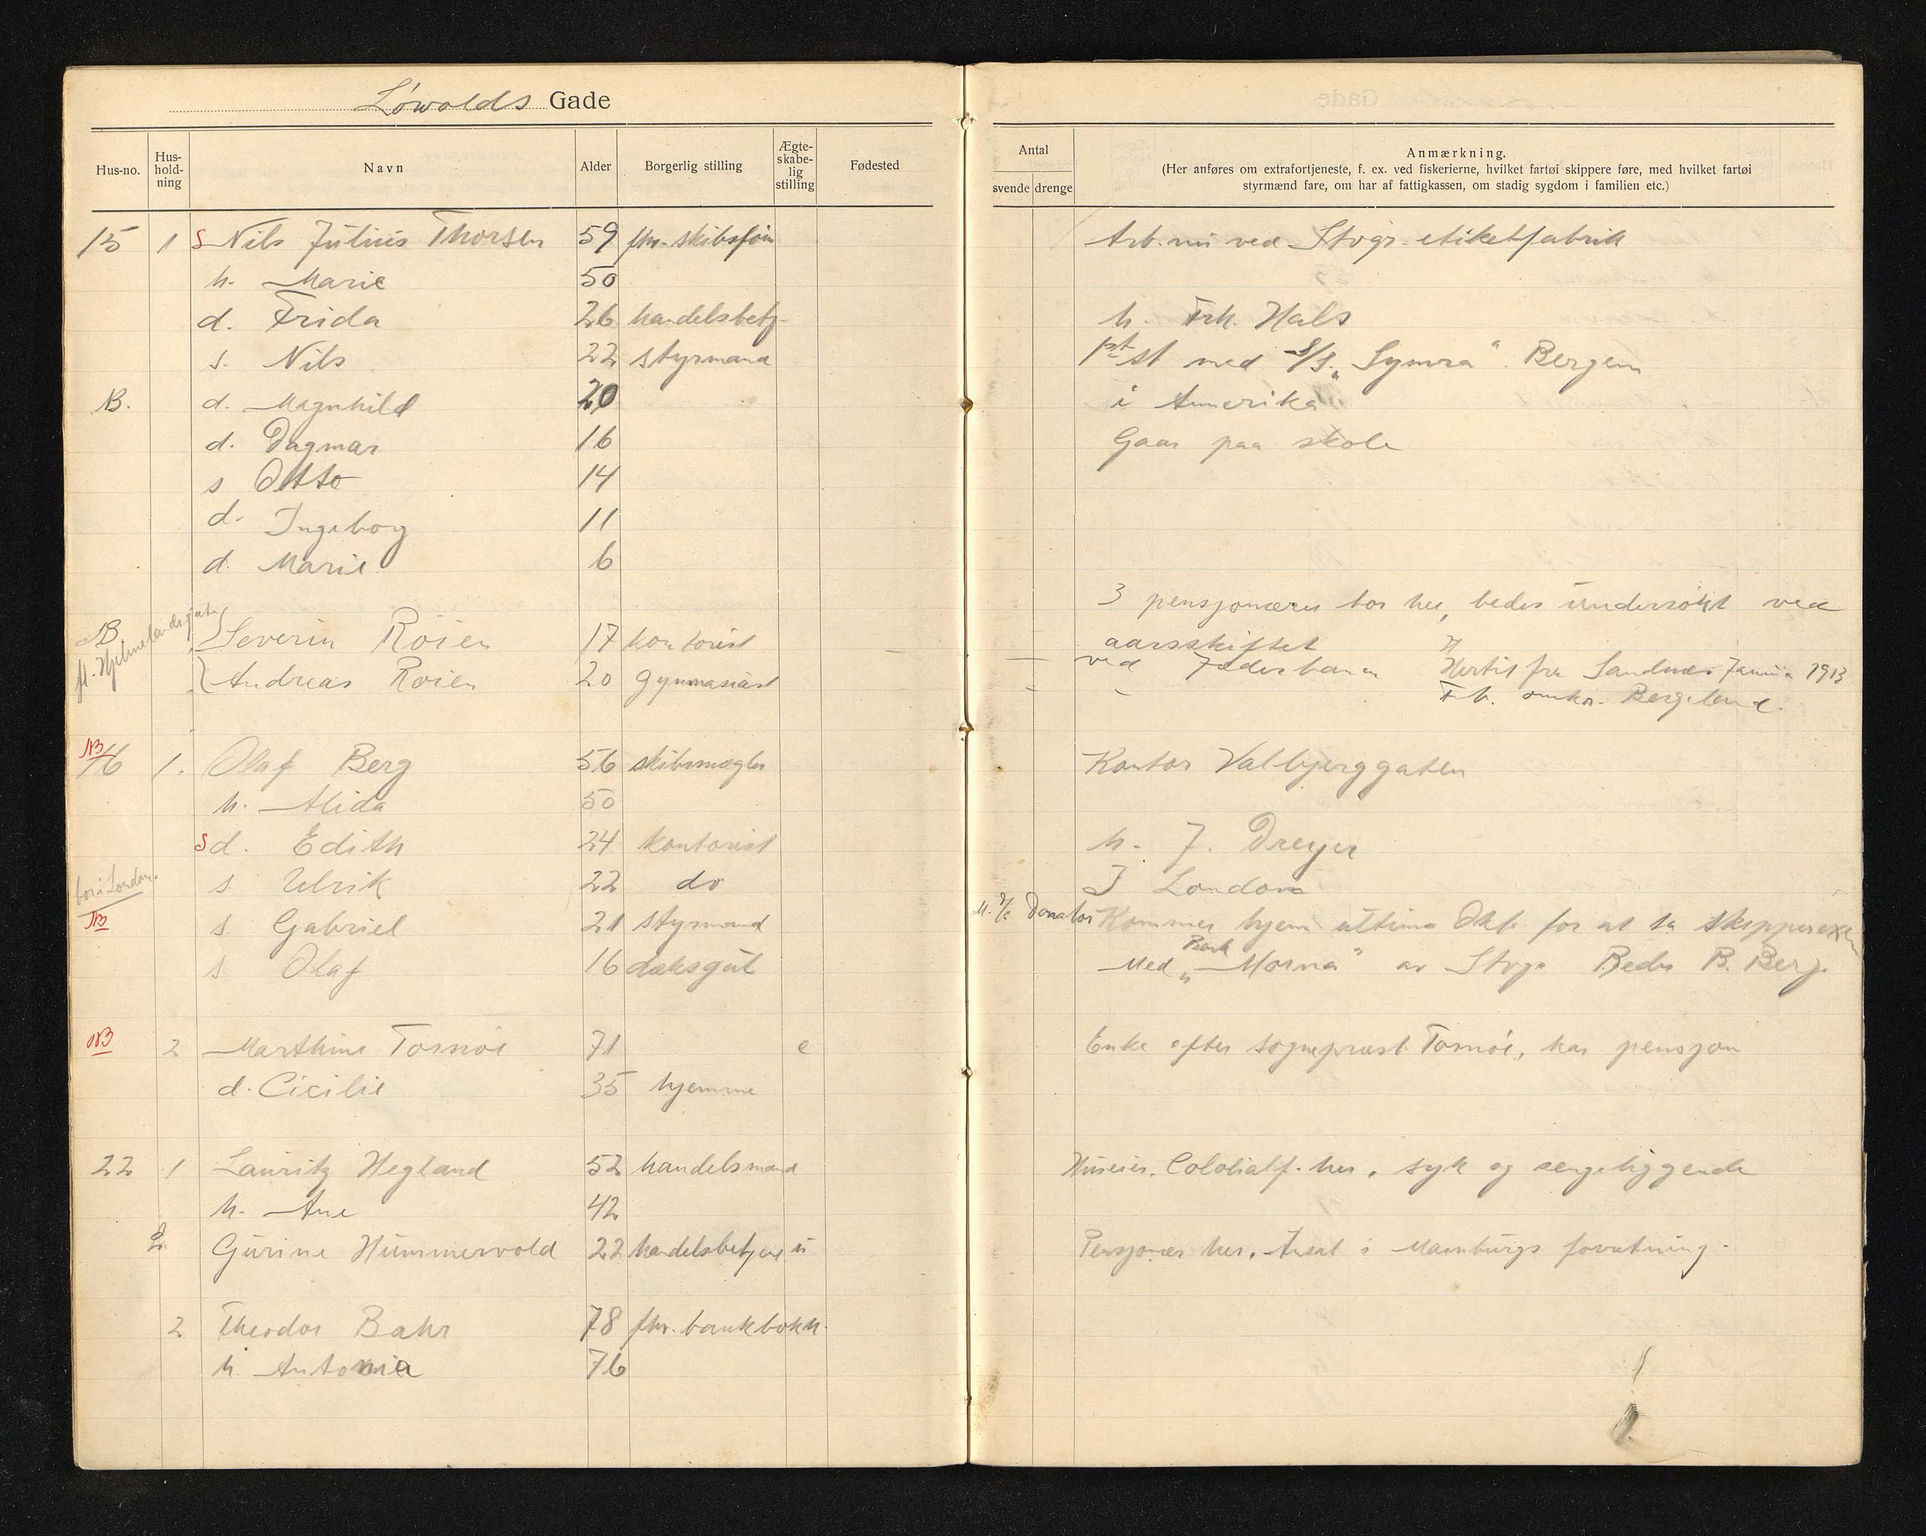 Løwolds Gade
Hus-no. Hus-hold-ning Navn Alder Borgerlig stilling Ægte-skabe-lig stilling Fødested
Antal svende drenge
Anmærkning.
(Her anføres om extrafortjeneste, f. ex. ved fiskerierne, hvilket fartøi skippere føre, med hvilket fartøi
styrmænd fare, om har af fattigkassen, om stadig sygdom i familien etc.)
15 1 S Nils Julius Thorsen 59 fhv. skibsfør Arb. nu ved Stvgr. etiketfabrik
h. Marie 50
d. Frida 26 handelsbetj. h. Frk. Hals
s. Nils 22 styrmand 1ste st med S/S. „Symra" Bergen
NB. d. Magnhild 20 i Amerika
d. Dagmar 16 Gaar paa skole
s Otto 14
d. Ingeborg 11
d. Marie 6
3 pensjonærer bor her, bedes undersøkt ved
aarsskiftet
NB fl. Hjelmelandsgate
Severin Röien 17 kontorist ved Jæderbanen Hertil fra Sandnes Januar 1913
Andreas Röien 20 gymnasiast - - F h. enkefr. Bergeland.
NB 16 1. Olaf Berg 56 skibsmægler Kontor Valbjerggaten
h. Alida 50
S d. Edith 24 kontorist h. J. Dreyer
bor i London. s. Ulrik 22 do I London
NB s. Gabriel 21 styrmand M. S/S Donator Kommer hjem ultimo Okt. for at ta skippereksen
s. Olaf 16 dæksgut Med Bark „Morna" av Stvgr Reder B. Berg.
NB 2 Marthine Tornöe 71 e Enke efter sogneprest Tornöe, har pensjon
d. Cicilie 35 hjemme
22 1 Lauritz Hegland 52 handelsmand Huseier. Colotialf. her. syk og sengeliggende
h. Ane 42
L. Gurine Hummervold 22 handelsbetjent u Pensjonær her. Ansat i Mamburgs forretning.
2 Theodor Bahr 78 fhv. bankbokh.
h Antonia 76